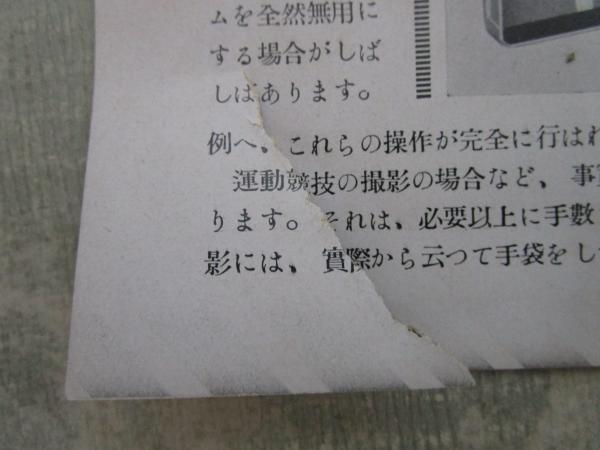 ムを全然無用に
する場合がしば
しばあります。
例へ、これらの操作が完全に行はれ
運動競技の撮影の場合など、事實
ります。それは、必要以上に手數
影には、實際から云つて手袋をし